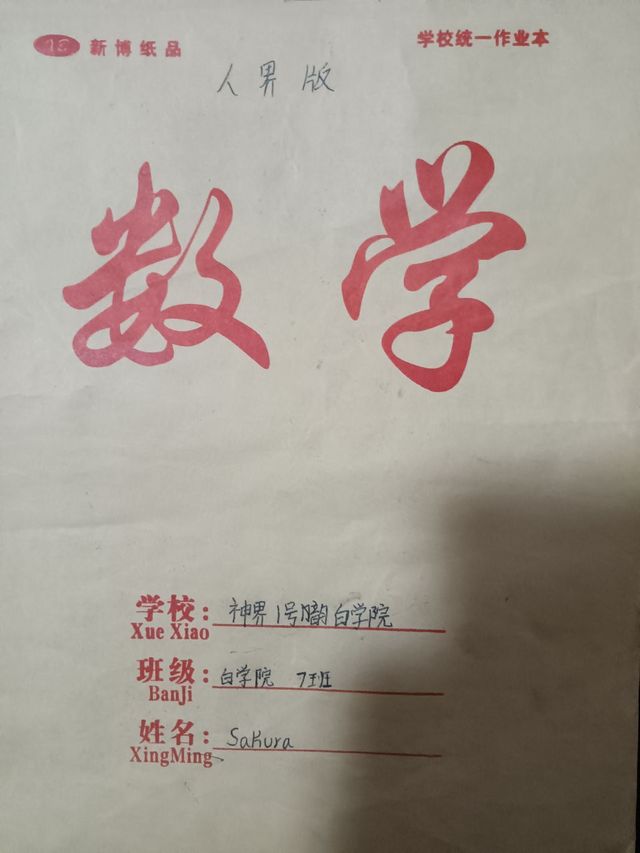 新博纸品
学校统一作业本
人界版
数学
学校：神界1号 白学院
Xue Xiao
班级：白学院 7班
BanJi
姓名：Sakura
XingMing